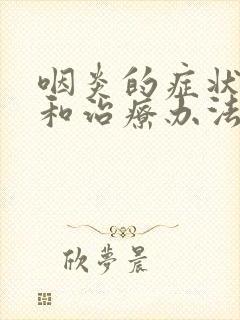 咽炎的症状
和治疗办法
欣夢晨